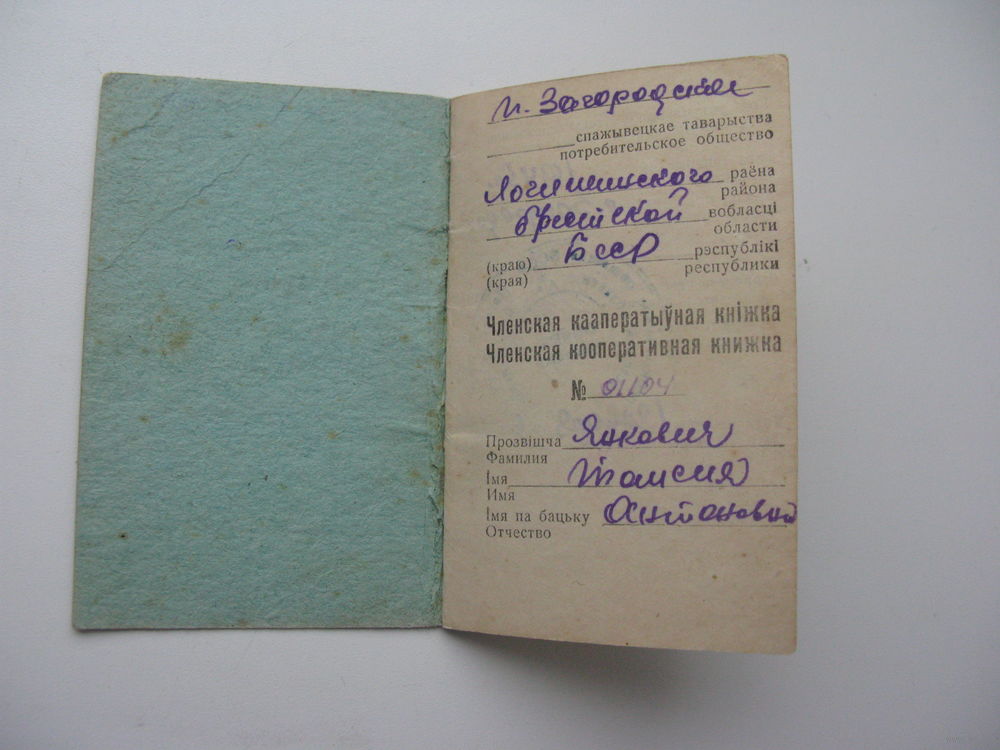 М. Загородская
спажывецкае таварыства
потребительское общество
Логишинского раёна
района
Брестской вобласці
области
(краю) БССР рэспублікі
(края) республики
Членская кааператыўная кніжка
Членская кооперативная книжка
№ 01104
Прозвішча Янкович
Фамилия
Імя Таисия
Имя
Імя па бацьку Антоновна
Отчество